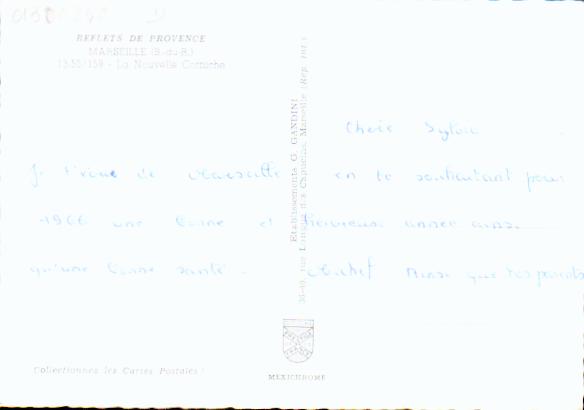 REFLETS DE PROVENCE
MARSEILLE (B.-du-R.)
13.55/159 - La Nouvelle Corniche
Etablissements G. GANDINI
Chère Sylvie
Je t'écris de Marseille en te souhaitant pour
1966 une bonne et heureuse année ainsi
qu'une bonne santé. Michel Ainsi que tes parents
Collectionnez les Cartes Postales !
MEXICHROME